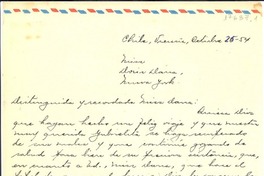 Chile, Vicuña, Octubre 25-54
Miss
Doris Dana,
Nueva York
Distinguida y recordada Miss Dana: Quiera Dios
que hayan hecho un feliz viaje y que nuestra
muy querida Gabriela se haya recuperado
de sus males y que continúe gozando de
salud para bien de su
que en cuanto a Ud., Miss Dana, que hace